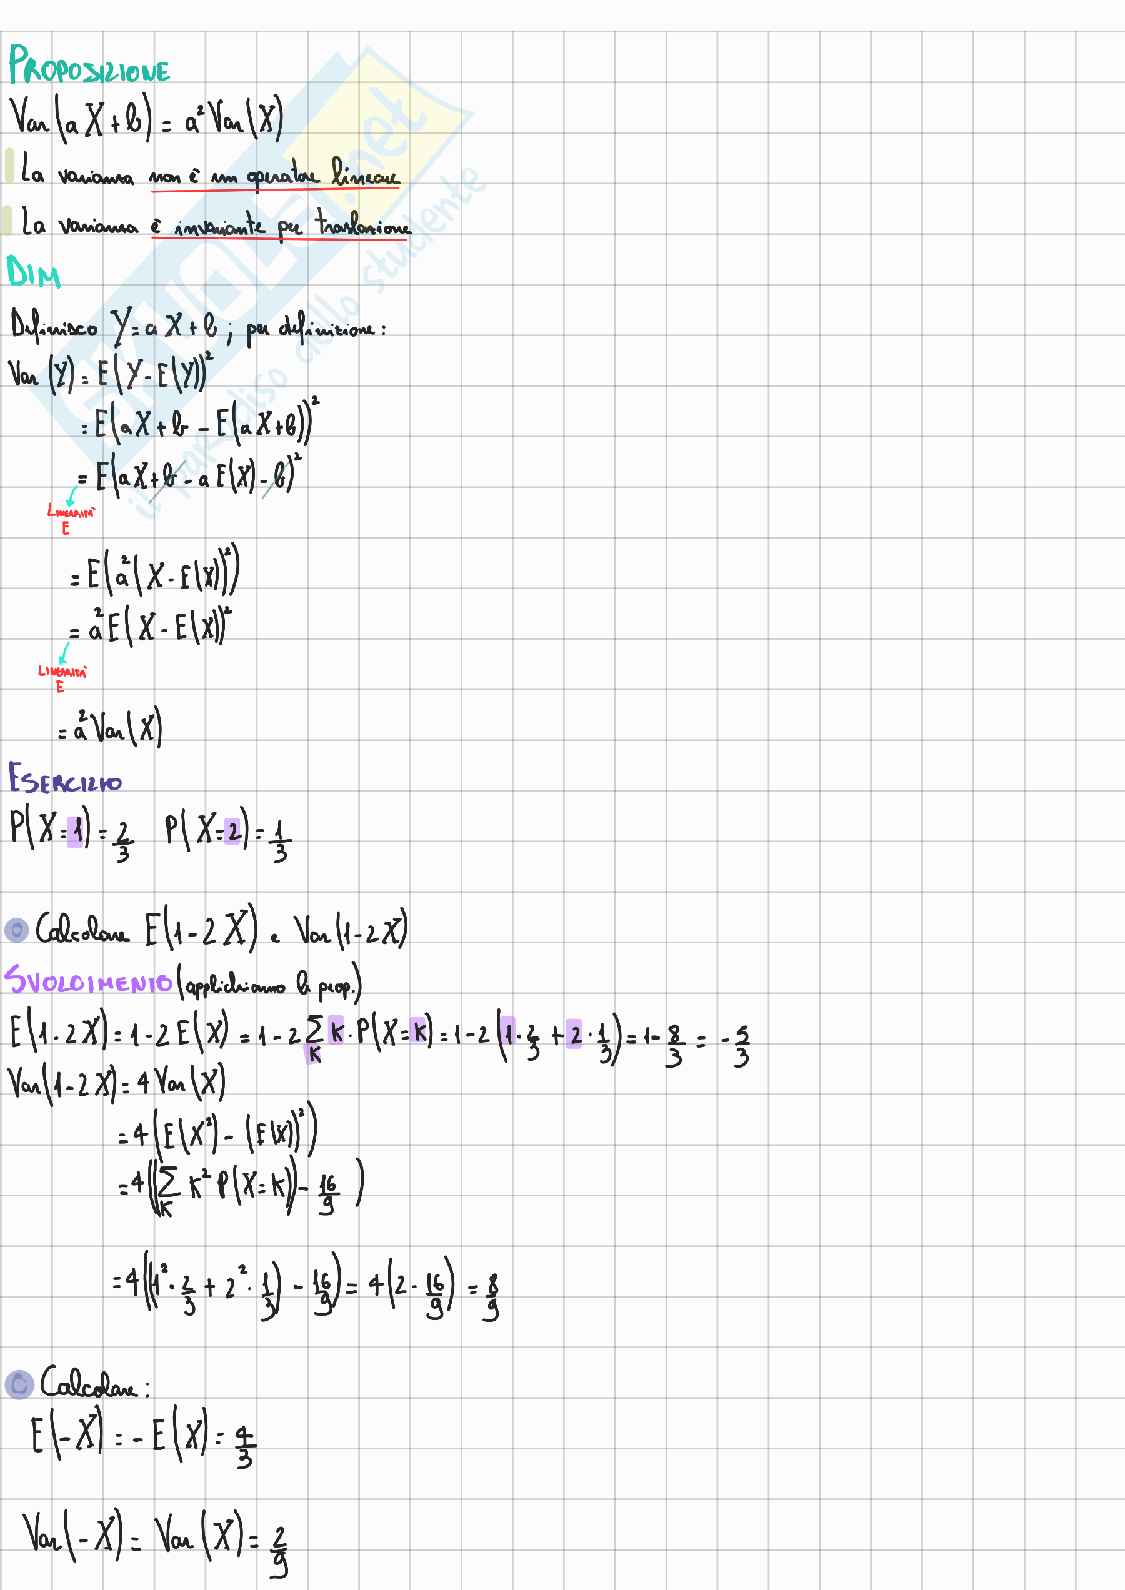 PROPOSIZIONE
Var(aX+b) = a² Var(X)
La varianza non è un operatore lineare
La varianza è invariante per traslazione
DIM
Definisco Y=aX+b ; per definizione:
Var(Y) = E(Y-E(Y))²
= E(aX+b - E(aX+b))²
= E(aX+b - aE(X) - b)²
LINEARITÀ
E
= E(a²(X-E(X))²)
= a² E(X-E(X))²
LINEARITÀ
E
= a² Var(X)
ESERCIZIO
P(X=1) = 2/3 P(X=2) = 1/3
Calcolare E(1-2X) e Var(1-2X)
SVOLGIMENTO (applichiamo la prop.)
E(1-2X) = 1-2E(X) = 1-2 Σ_K K·P(X=K) = 1-2(1·2/3 + 2·1/3) = 1-8/3 = -5/3
Var(1-2X) = 4 Var(X)
= 4(E(X²) - (E(X))²)
= 4((Σ_K K² P(X=K)) - 16/9)
= 4((1²·2/3 + 2²·1/3) - 16/9) = 4(2-16/9) = 8/9
Calcolare:
E(-X) = -E(X) = 4/3
Var(-X) = Var(X) = 2/9
SKUOLA.net
il paradiso dello studente